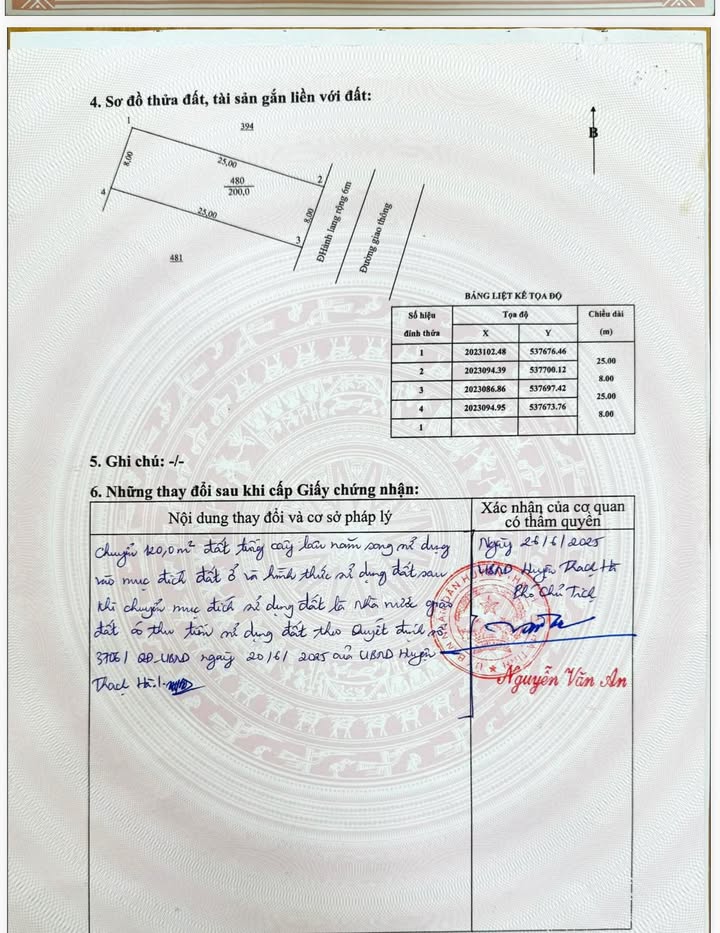 4. Sơ đồ thửa đất, tài sản gắn liền với đất:
B
394
1
25,00
8,00
2
480
200,0
4
25,00
8,00
3
ĐHành lang rộng 6m
Đường giao thông
481
BẢNG LIỆT KÊ TỌA ĐỘ
Số hiệu đỉnh thửa Tọa độ Chiều dài (m)
X Y
1 2023102.48 537676.46
25.00
2 2023094.39 537700.12
8.00
3 2023086.86 537697.42
25.00
4 2023094.95 537673.76
8.00
1
5. Ghi chú: -/-
6. Những thay đổi sau khi cấp Giấy chứng nhận:
Nội dung thay đổi và cơ sở pháp lý
Xác nhận của cơ quan
có thẩm quyền
Chuyển 120,0m² đất trồng cây lâu năm sang sử dụng
vào mục đích đất ở và hình thức sử dụng đất sau
khi chuyển mục đích sử dụng đất là nhà nước giao
đất có thu tiền sử dụng đất theo Quyết định số
3706/QĐ-UBND ngày 20/6/2025 của UBND Huyện
Thạch Hà./.
Ngày 26/6/2025
UBND Huyện Thạch Hà
Phó Chủ Tịch
Nguyễn Văn An